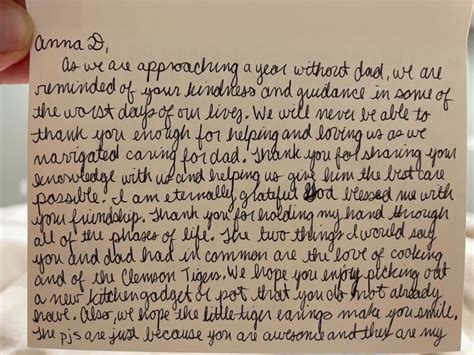 Anna D,
As we are approaching a year without dad, we are
reminded of your kindness and guidance in some of
the worst days of our lives. We will never be able to
thank you enough for helping and loving us as we
navigated caring for dad. Thank you for sharing your
knowledge with us and helping us give him the best care
possible. I am eternally grateful God blessed me with
your friendship. Thank you for holding my hand through
all of the phases of life. The two things I would say
you and dad had in common are the love of cooking
and of the Clemson Tigers. We hope you enjoy picking out
a new kitchen gadget or pot that you do not already
have. Also, we hope the little tiger earings make you smile.
The pjs are just because you are awesome and they are my